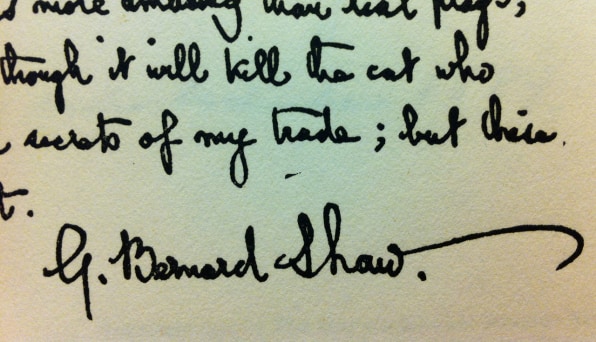 more amusing than real plays;
though it will kill the cat who
secrets of my trade; but these
t.
G. Bernard Shaw.